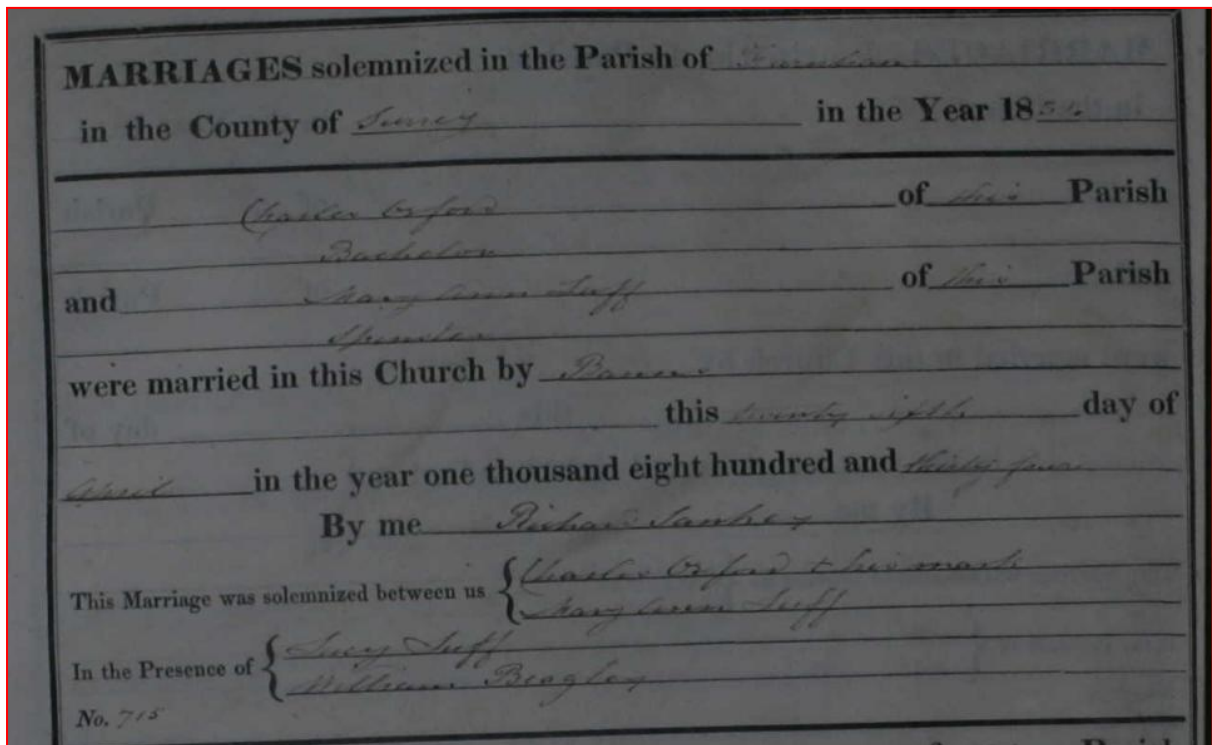 MARRIAGES solemnized in the Parish of Farnham
in the County of Surrey in the Year 1834
Charles Orford of this Parish
Bachelor
and Mary Ann Tuff of this Parish
Spinster
were married in this Church by Banns
this twenty fifth day of
April in the year one thousand eight hundred and thirty four
By me Richard Sankey
This Marriage was solemnized between us { Charles Orford + his mark
Mary Ann Tuff
In the Presence of { Lucy Tuff
William Beagley
No. 715
Parish